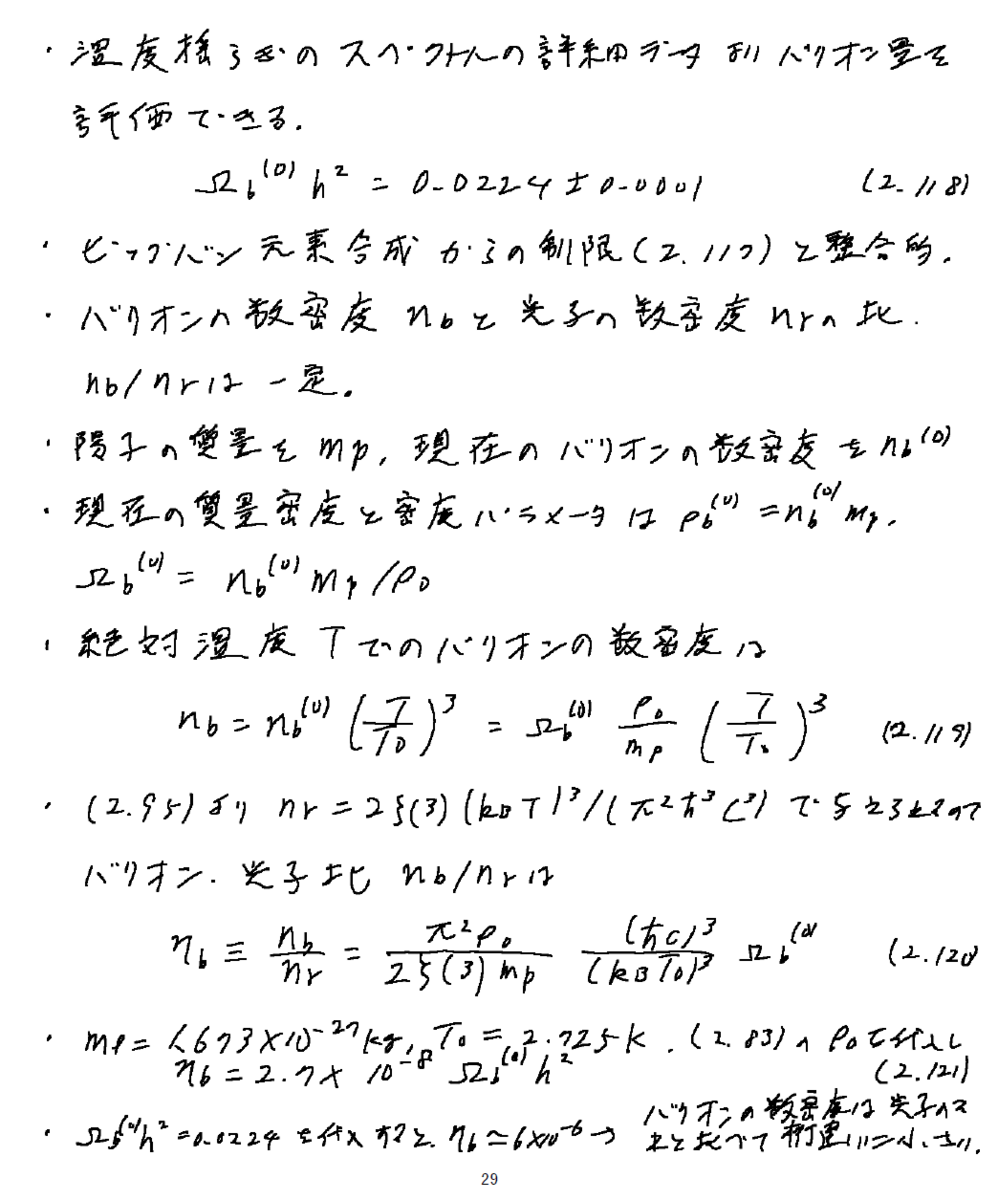 ・温度揺らぎのスペクトルの詳細データよりバリオン量を
評価できる.
Ω_b^(0) h^2 = 0.0224 ± 0.0001 (2.118)
・ビッグバン元素合成からの制限(2.117)と整合的.
・バリオンの数密度 n_b と光子の数密度 n_γ の比.
n_b/n_γ は一定。
・陽子の質量を m_p, 現在のバリオンの数密度を n_b^(0)
・現在の質量密度と密度パラメータは ρ_b^(0) = n_b^(0) m_p,
Ω_b^(0) = n_b^(0) m_p / ρ_0
・絶対温度 T でのバリオンの数密度は
n_b = n_b^(0) (T/T_0)^3 = Ω_b^(0) ρ_0/m_p (T/T_0)^3 (2.119)
・(2.95)より n_γ = 2ζ(3)(k_B T)^3/(π^2 ħ^3 c^3) で与えられるので
バリオン・光子比 n_b/n_γ は
η_b ≡ n_b/n_γ = π^2 ρ_0/(2ζ(3) m_p) (ħc)^3/(k_B T_0)^3 Ω_b^(0) (2.120)
・m_p = 1.673×10^-27 kg, T_0 = 2.725 K. (2.83)の ρ_0 を代入し
η_b = 2.7× 10^-8 Ω_b^(0) h^2 (2.121)
・Ω_b^(0) h^2 = 0.0224 を代入すると, η_b ≃ 6×10^-6 → バリオンの数密度は光子のそ
れと比べて桁違いに小さい.
29